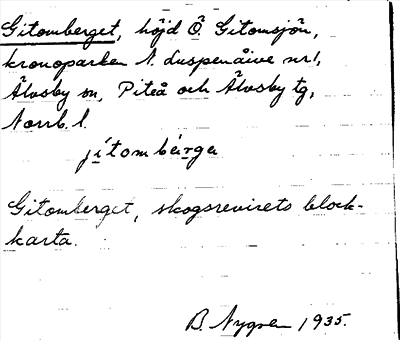 Gitomberget, höjd Ö. Gitomsjön,
kronoparken N. Luspenåive nr 1,
Älvsby sn, Piteå och Älvsby tg,
Norrb. l.
jitombärge
Gitomberget, skogsrevirets block-
karta.
B. Nygren 1935.